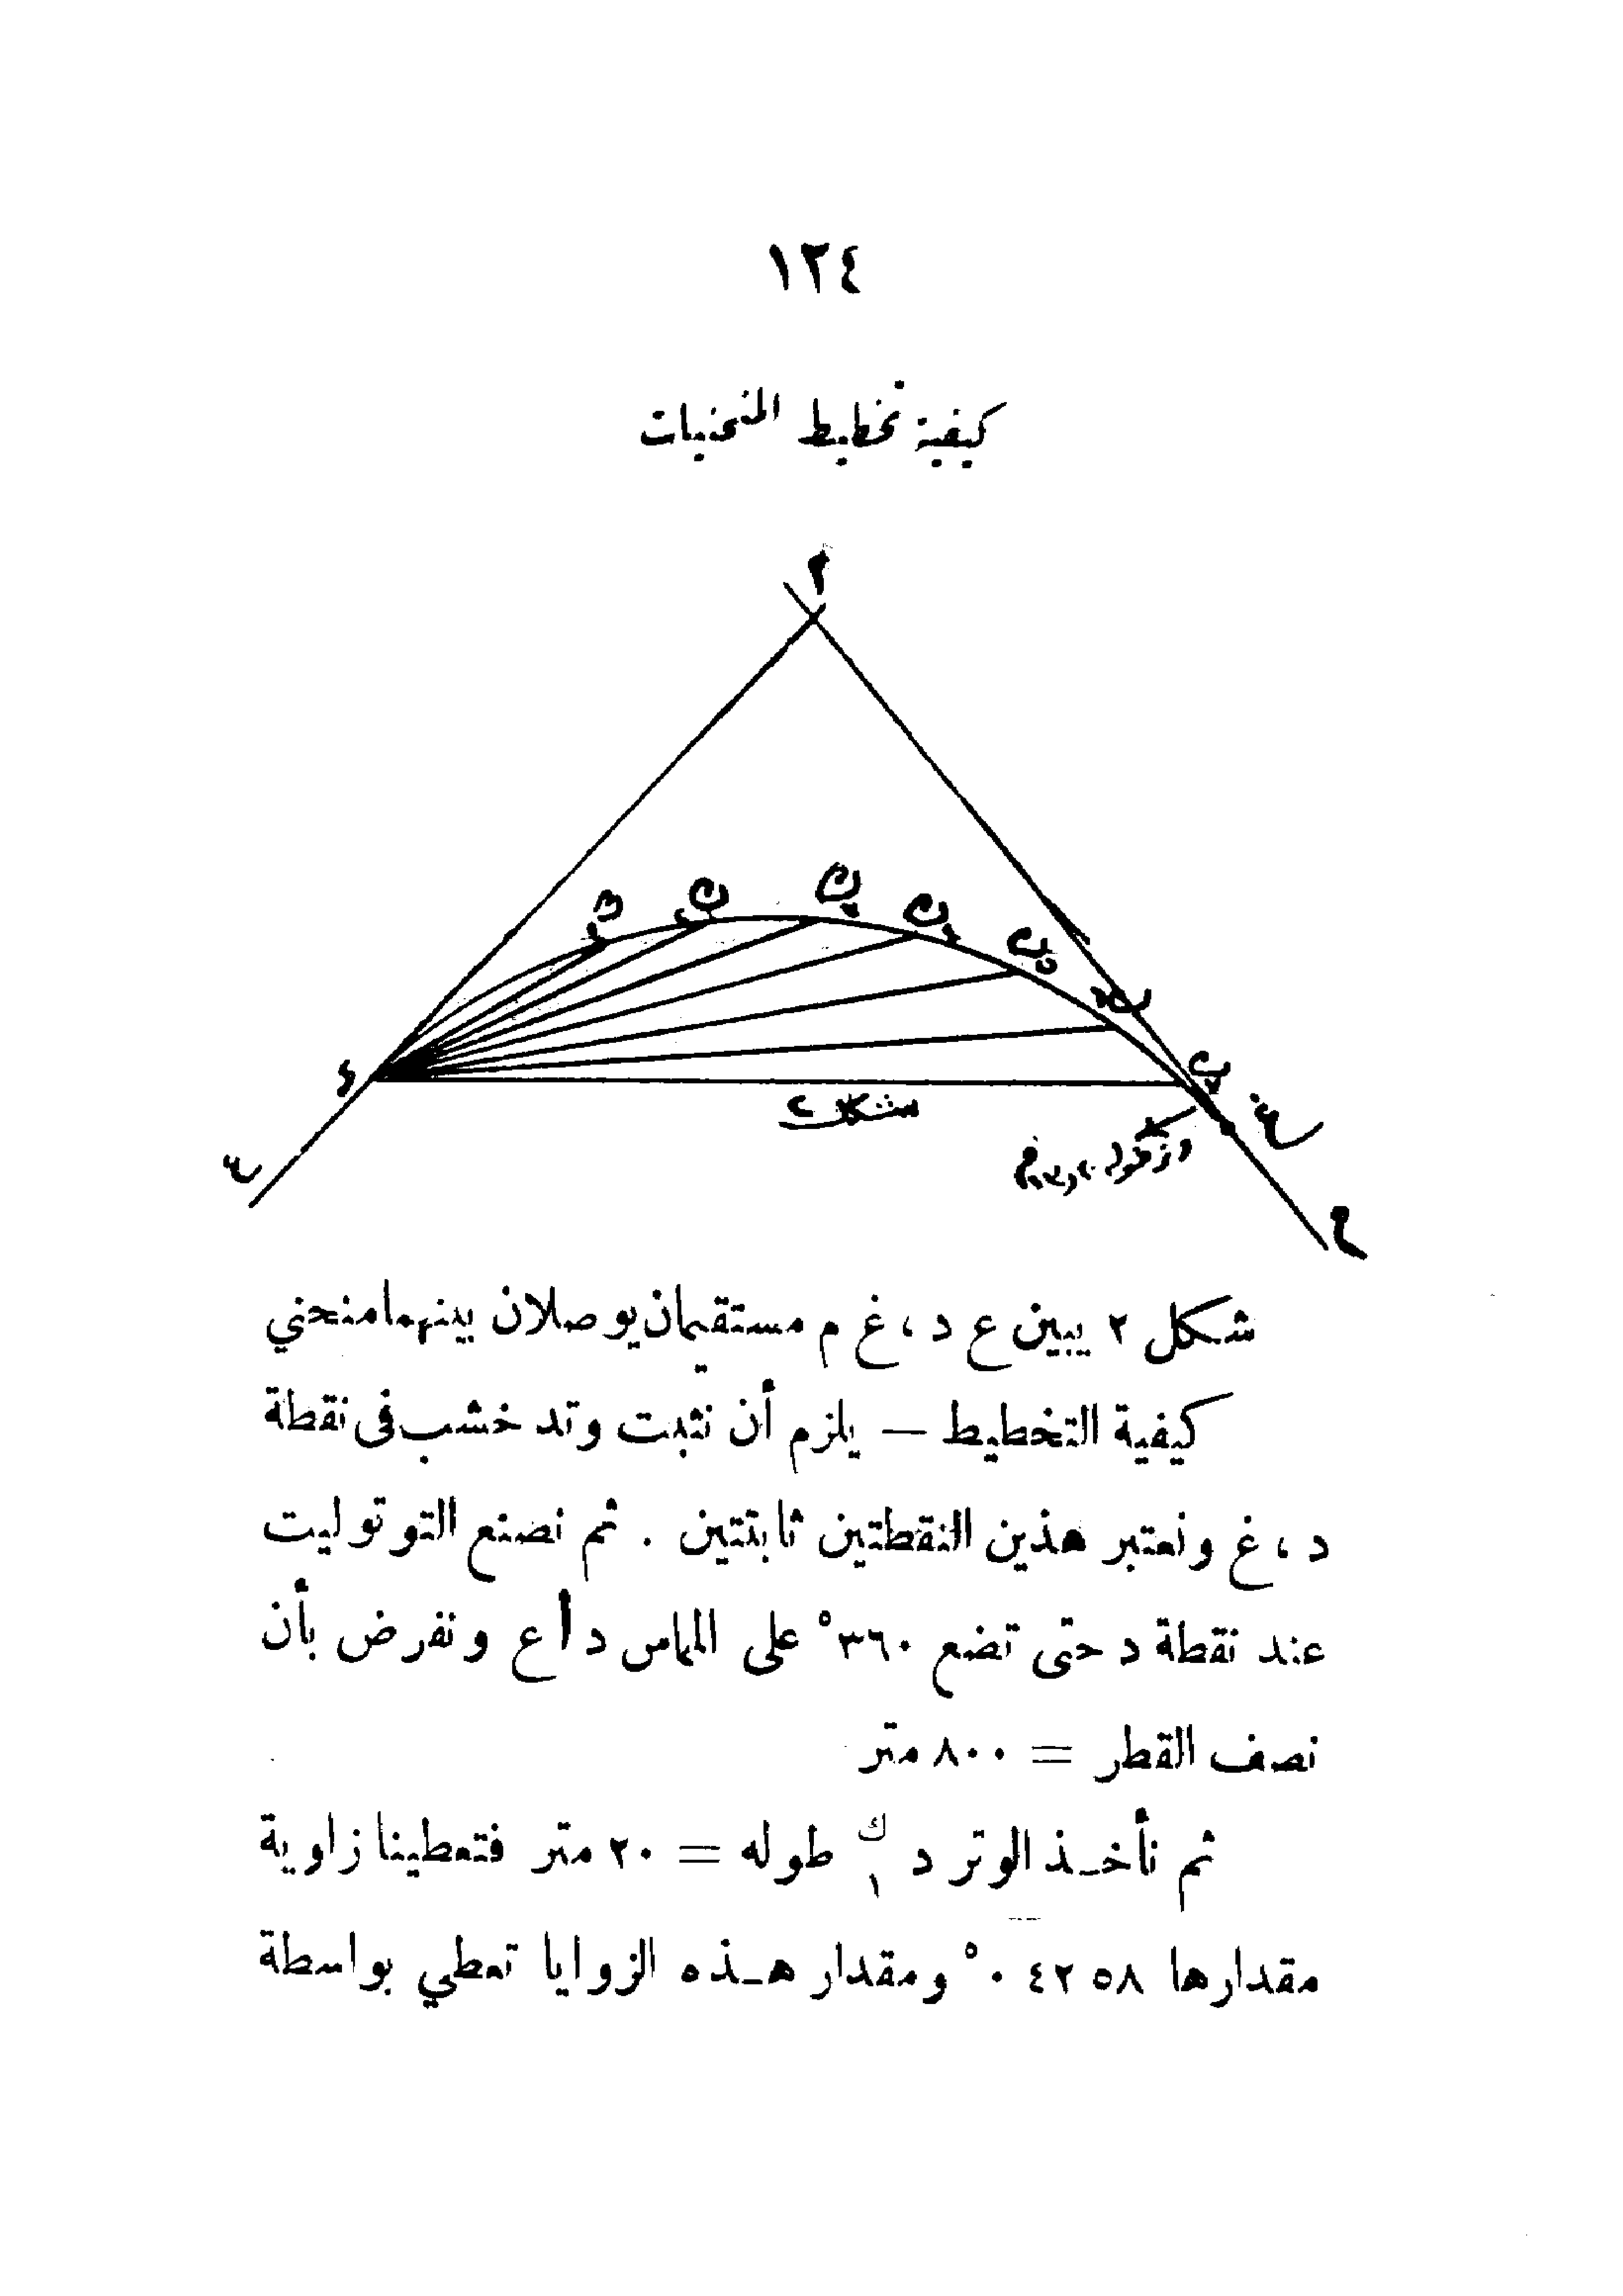 ١٢٤
كيفية تخطيط المنحنيات
أ
د
ع
غ
م
شكل ٢
شكل ٢ يبين ع د ، غ م مستقيمان يوصلان بينهما منحني
كيفية التخطيط — يلزم أن نثبت وتد خشب في نقطة
د ، غ ونعتبر هذين النقطتين ثابتتين . ثم نصنع التوتوليت
عند نقطة د حتى تضع ٣٦٠° على المماس د أ ع ونفرض بأن
نصف القطر = ٨٠٠ متر
ثم نأخذ الوتر د ك١ طوله = ٢٠ متر فتعطينا زاوية
مقدارها ٥٨ ٤٢ ٠° ومقدار هذه الزوايا تعطي بواسطة